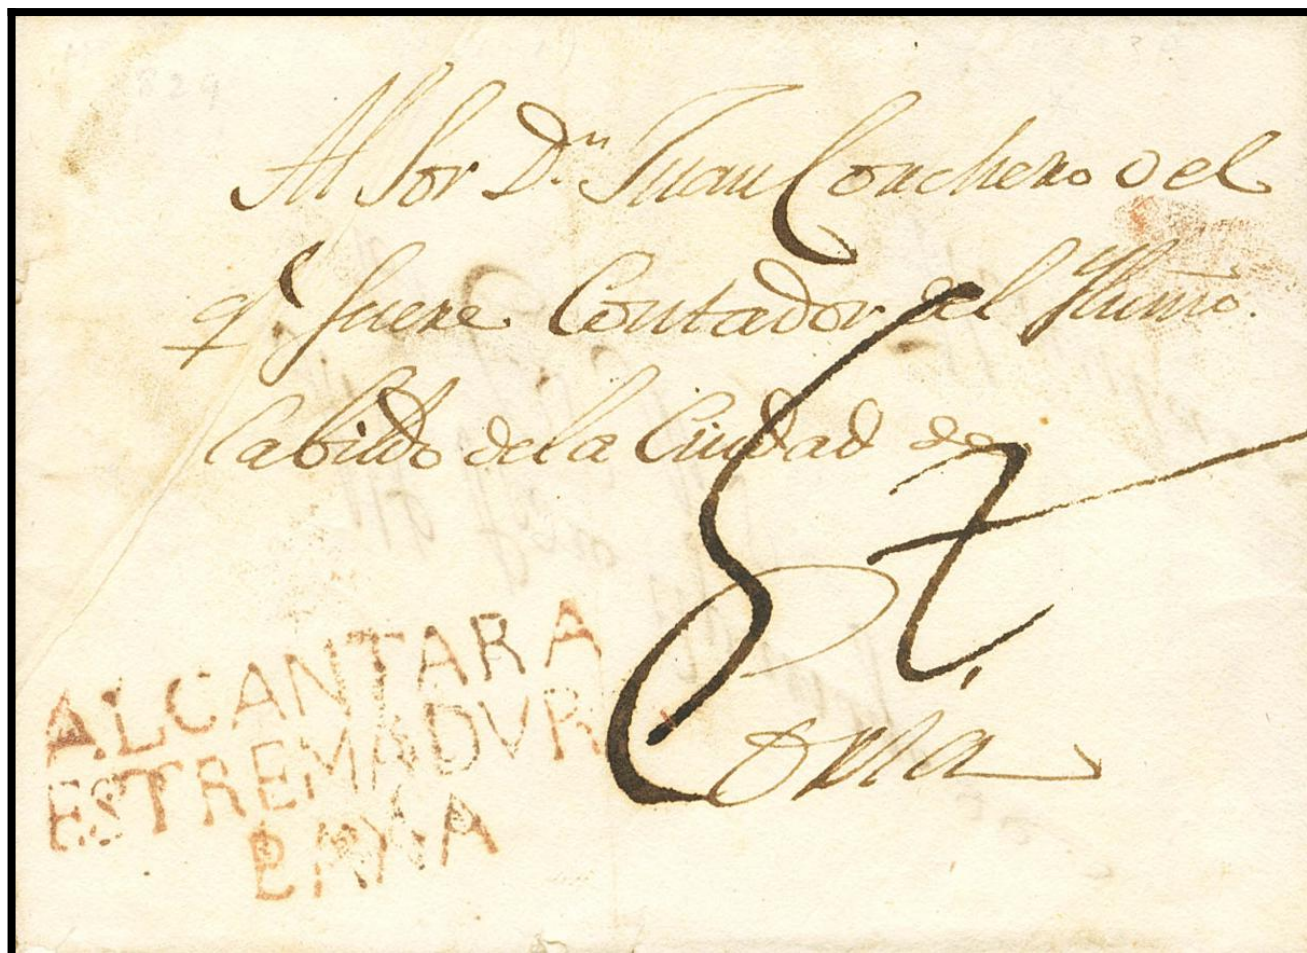 829
Al Sor Dn. Juan Conchero o el
qe. fuere Contador del Yllmo.
Cabildo de la Ciudad de
Coria
ALCANTARA
ESTREMADVR
BAXA